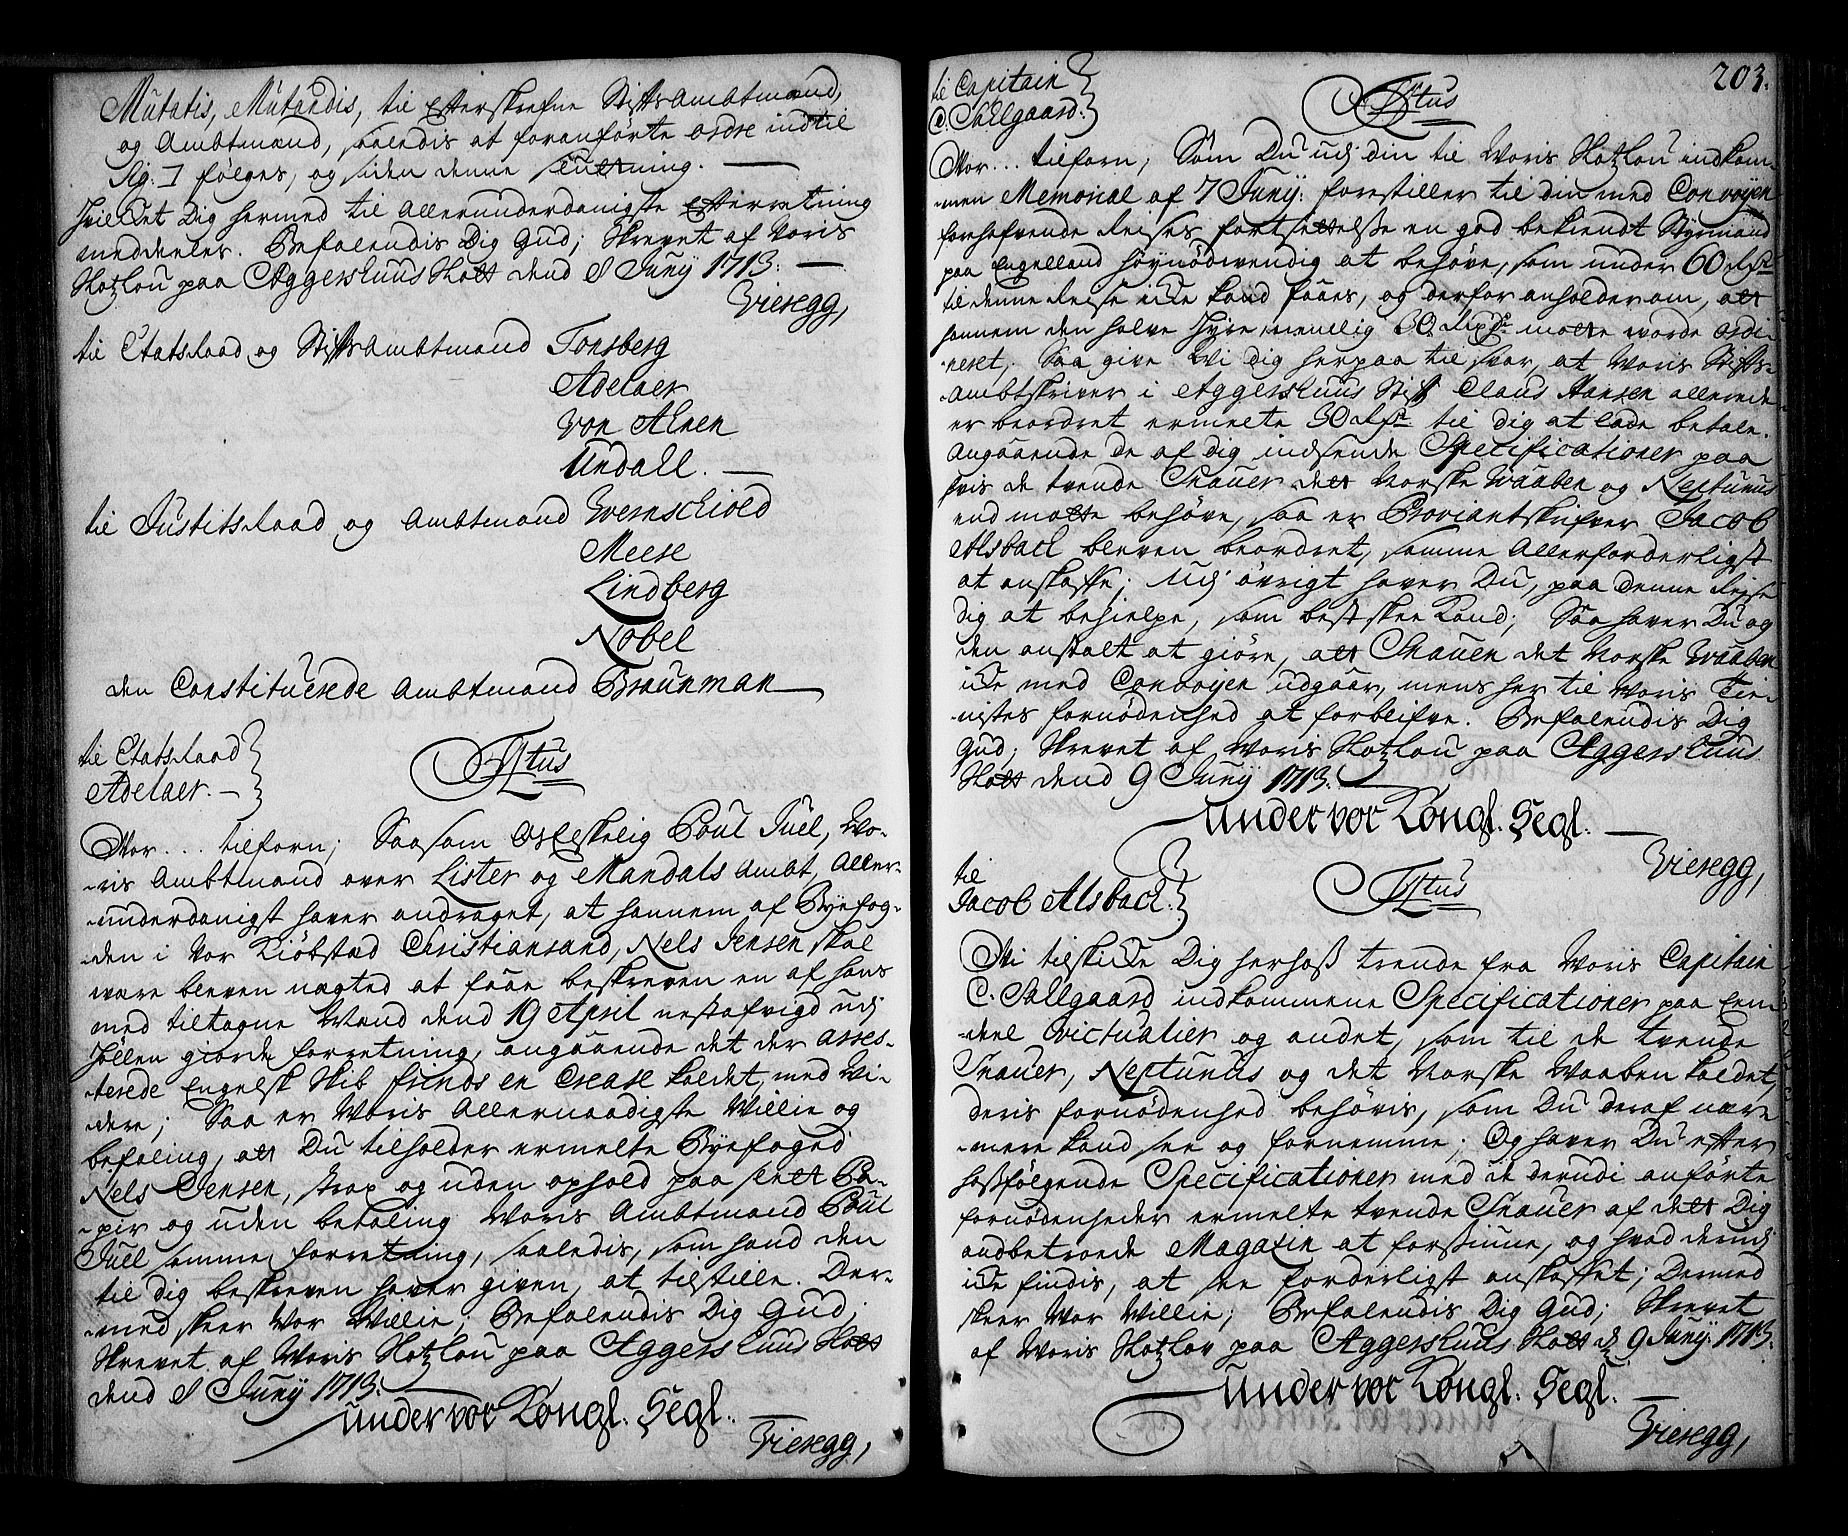 Mutatis, Mutandis, til Efterskrefne Stiftsambtmænd,
og Ambtmænd, saaledis at foranførte ordre indtil
Sig. ] følges, og siden denne slutning. —
Hvilcket Dig hermed til Allerunderdanigste Efterretning
meddeeles. Befalendis Dig Gud; Skrevet af Voris
Slotzlou paa Aggershuus Slott dend 8 Junij 1713. —
Vieregg,
til Etatsraad og StiftsAmbtmand Tonsberg
Adelaer
von Ahnen
Undall. —
til Justitsraad og Ambtmand Wernschiold
Meese
Lindberg
Nobel
den Constituerede Ambtmand Braunman
til Etatsraad
Adelaer. —
Ftus
Vor... tilforn; Saasom Os Elskelig Poul Juel, Vo-
-ris Ambtmand over Lister og Mandals Ambt, Aller-
-underdanigst haver andraget, at hannem af Byefog-
-den i Vor Kiøbstæd Christiansand, Nels Jensen skal
være bleven nægted at faae beskreven en af hans
med tiltagne Mænd dend 19 April nestafvigt udj
Hollen giorde forretning, angaaende det der asses-
-terede Engelsk Skib Friends en Crease kaldet, med Vi-
-dere; Saa er Voris Allernaadigste Villie og
befaling, att Du tilholder ermelte Byefoged
Nels Jensen, strax og uden ophold paa slett Pa-
-pir og uden betaling Voris Ambtmand Poul
Juel samme forretning, saaledis, som hand den
til dig beskreven haver given, at tilstille. Der-
-med skeer Vor Villie; Befalendis Dig Gud;
Skrevet af Voris Slotzlou paa Aggershuus Slott
dend 8 Junij 1713.
Under vor Kongl. Segl. —
Vieregg,
203.
til Capitain
C. Sallgaard.
Ftus
Vor... tilforn; Som Du udj din til Voris Slotzlou indkom-
-men Memorial af 7 Junij: forestiller til din med Convoyen
forehafvende Reises fortsettelse en god bekiendt Styrmand
paa Engelland høynødvendig at behøve, som under 60 Rdr
til denne Reise icke kand faaes, og derfor anholder om, att
hannem den halve Hyre nemlig 30 Rdr motte worde ordi-
-neret, Saa give Vi dig herpaa til svar, at Voris Stifts-
-Ambtskriver i Aggershuus Stift Claus Hansen allerede
er beordret ermelte 30 Rdr til dig at lade betale.
Angaaende de af dig indsende Specificationer paa
hvis de tvende Snauer det Norske Vaaben og Neptunus
end motte behøve, saa er Proviantskrifver Jacob
Alsbach bleven beordret, samme Allerforderligst
at anskaffe; Udj øvrigt haver Du, paa denne Reise
dig at behielpe, som best skee kand; Saa haver Du og
den anstalt at giøre, att Snauen det Norske Vaaben
icke med Convoyen udgaar, mens her til Voris Tie-
-nistes fornødenhed at forblifve. Befalendis Dig
Gud; Skrevet af Voris Slotzlou paa Aggershuus
Slott dend 9 Junij 1713.
Under vor Kongl. Segl. —
Vieregg,
til
Jacob Alsbach.
Ftus
Vi tilskicke Dig herhoß trende fra Voris Capitain
C. Sallgaard indkommene Specificationer paa Een-
-deel Victualier og andet, som til de tvende
Snauer, Neptunus og det Norske Vaaben kaldet,
deris fornødenhed behøvis, som Du deraf nær-
-mere kand see og fornemme; Og haver Du efter
hoßfølgende Specificationer med it derudi anførte
fornødenheder ermelte tvende Snauer af dett Dig
anbetroede Magazin at forsiune, og hvad derudj
icke findis, at see forderligst anskaffet; Dermed
skeer Vor Villie; Befalendis Dig Gud; Skrevet
af Voris Slotzlov paa Aggershuus Slott d. 9 Junij 1713.
Under vor Kongl. Segl. —
Vieregg,